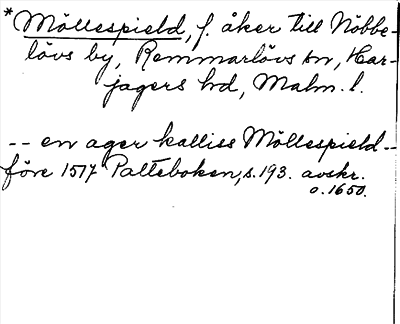 *Möllespield, f. åker till Nöbbe-
lövs by, Remmarlövs sn, Har-
jagers hd, Malm. l.
-- en ager kalliss Möllespield --
före 1517 Palteboken, s. 193. avskr.
o. 1650.